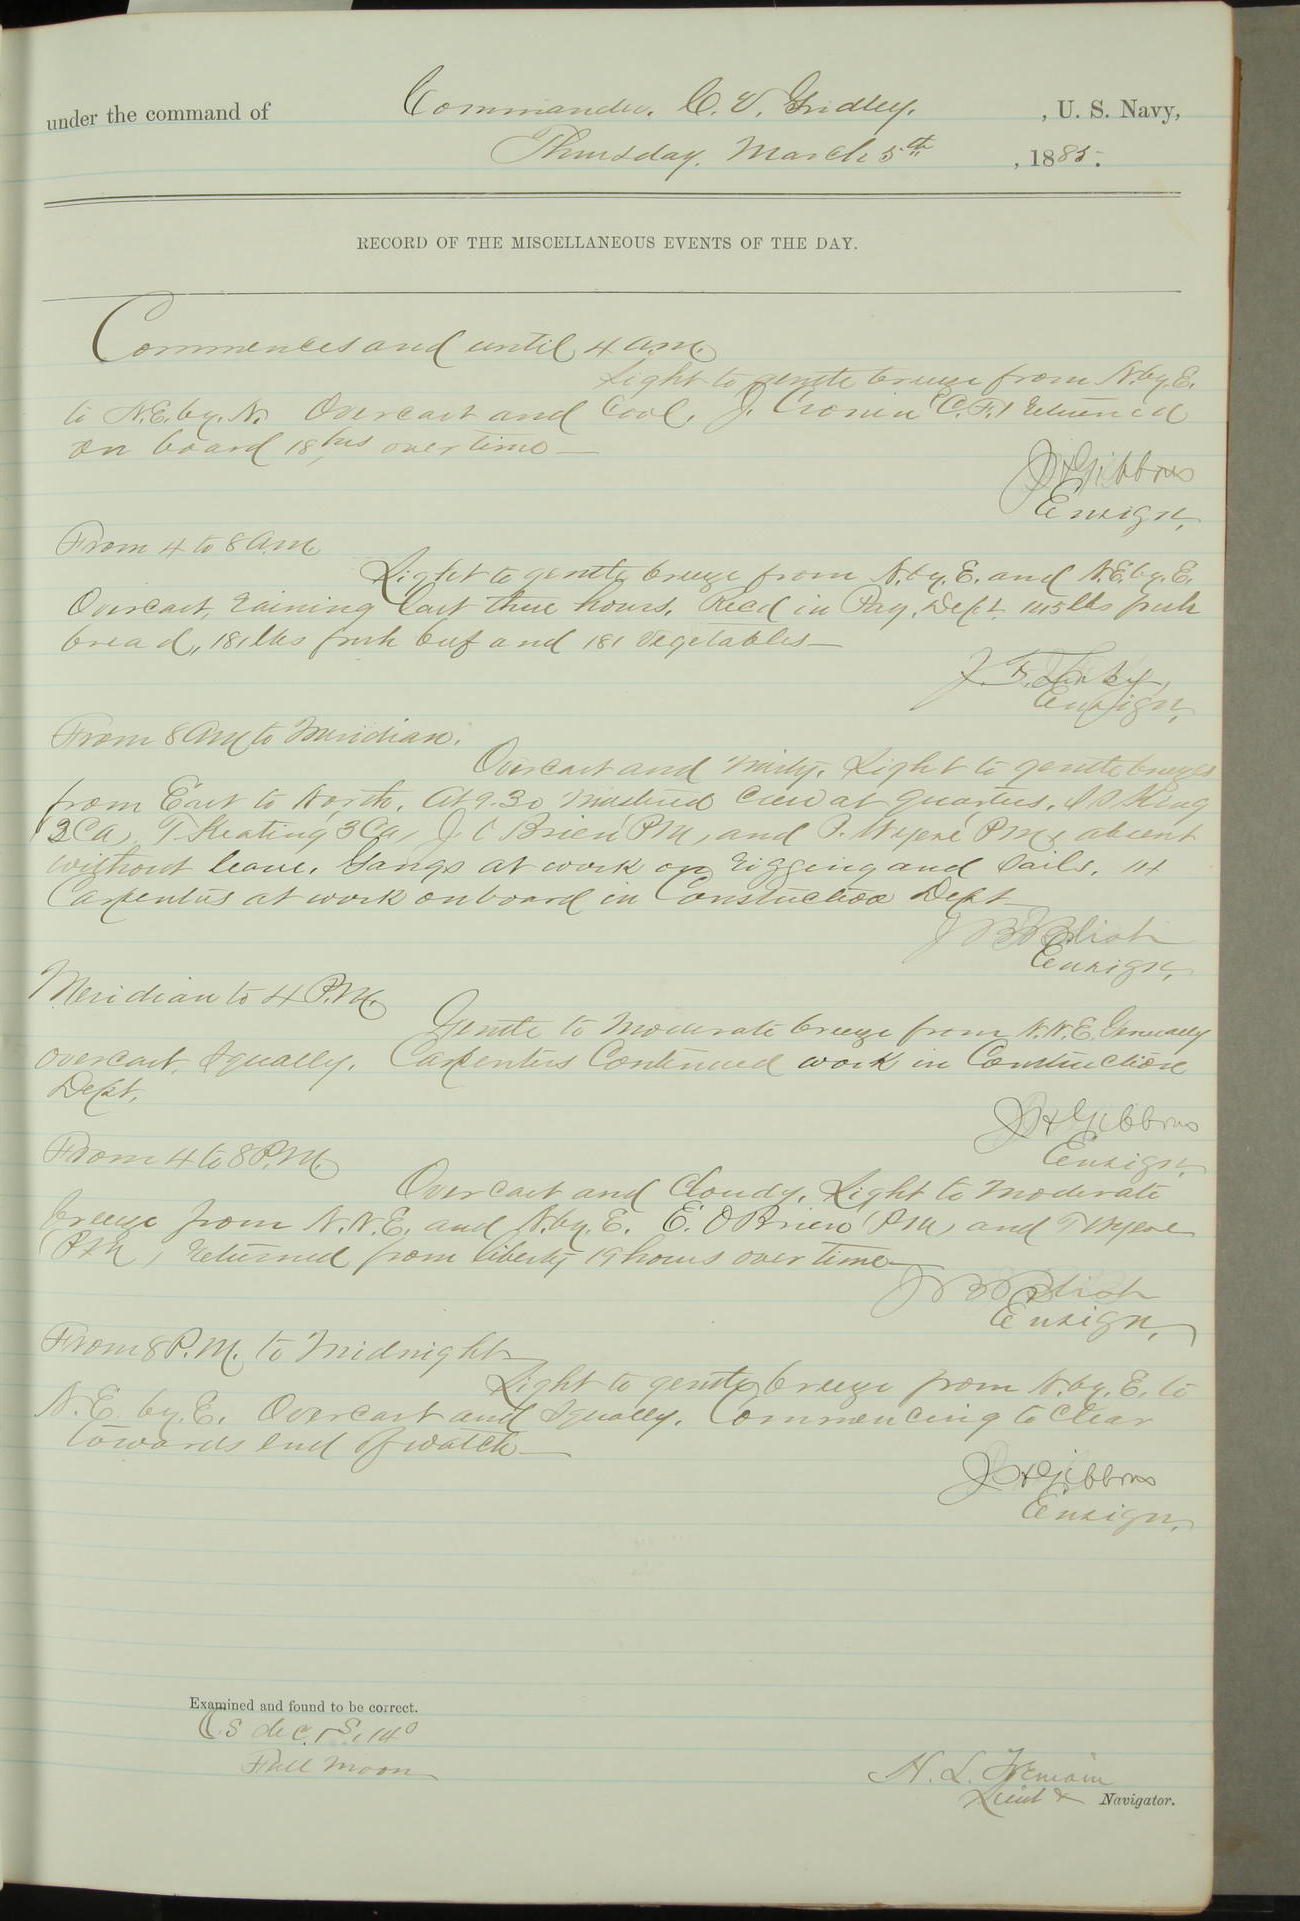 under the command of Commander. C. V. Gridley. , U. S. Navy,
Thursday, March 5th , 1885.
RECORD OF THE MISCELLANEOUS EVENTS OF THE DAY.
Commences and until 4 a.m.
Light to gentle breeze from N.by.E.
to N.E.by.N. Overcast and Cool. J. Cronin (C.F.) returned
on board 18 hrs over time —
J H Gibbons
Ensign,
From 4 to 8 a.m.
Light to gentle breeze from N.by.E. and N.E.by.E.
Overcast, raining last three hours. Recd in Pay. Dept. lbs fresh
bread, 181 lbs fresh beef and 181 vegetables —
Ensign,
From 8 AM to Meridian.
Overcast and misty. Light to gentle breezes
from East to North. At 9.30 mustered crew at quarters. King
T Keating J. O'Brien and absent
without leave. Gangs at work on rigging and sails. 14
Carpenters at work on board in Construction Dept —
J B Blish
Ensign,
Meridian to 4 P.M.
Gentle to moderate breeze from N.N.E. Generally
overcast, squally. Carpenters Continued work in Construction
Dept.
J H Gibbons
Ensign,
From 4 to 8 P.M.
Overcast and Cloudy. Light to moderate
breeze from N.N.E. and N.by.E. E. O'Brien and
returned from liberty 19 hours over time —
J B Blish
Ensign,
From 8 P.M. to Midnight
Light to gentle breeze from N.by.E. to
N.E. by.E. Overcast and squally. Commencing to Clear
towards end of watch —
J H Gibbons
Ensign,
Examined and found to be correct.
S, 14°
Full Moon
Lieut & Navigator.